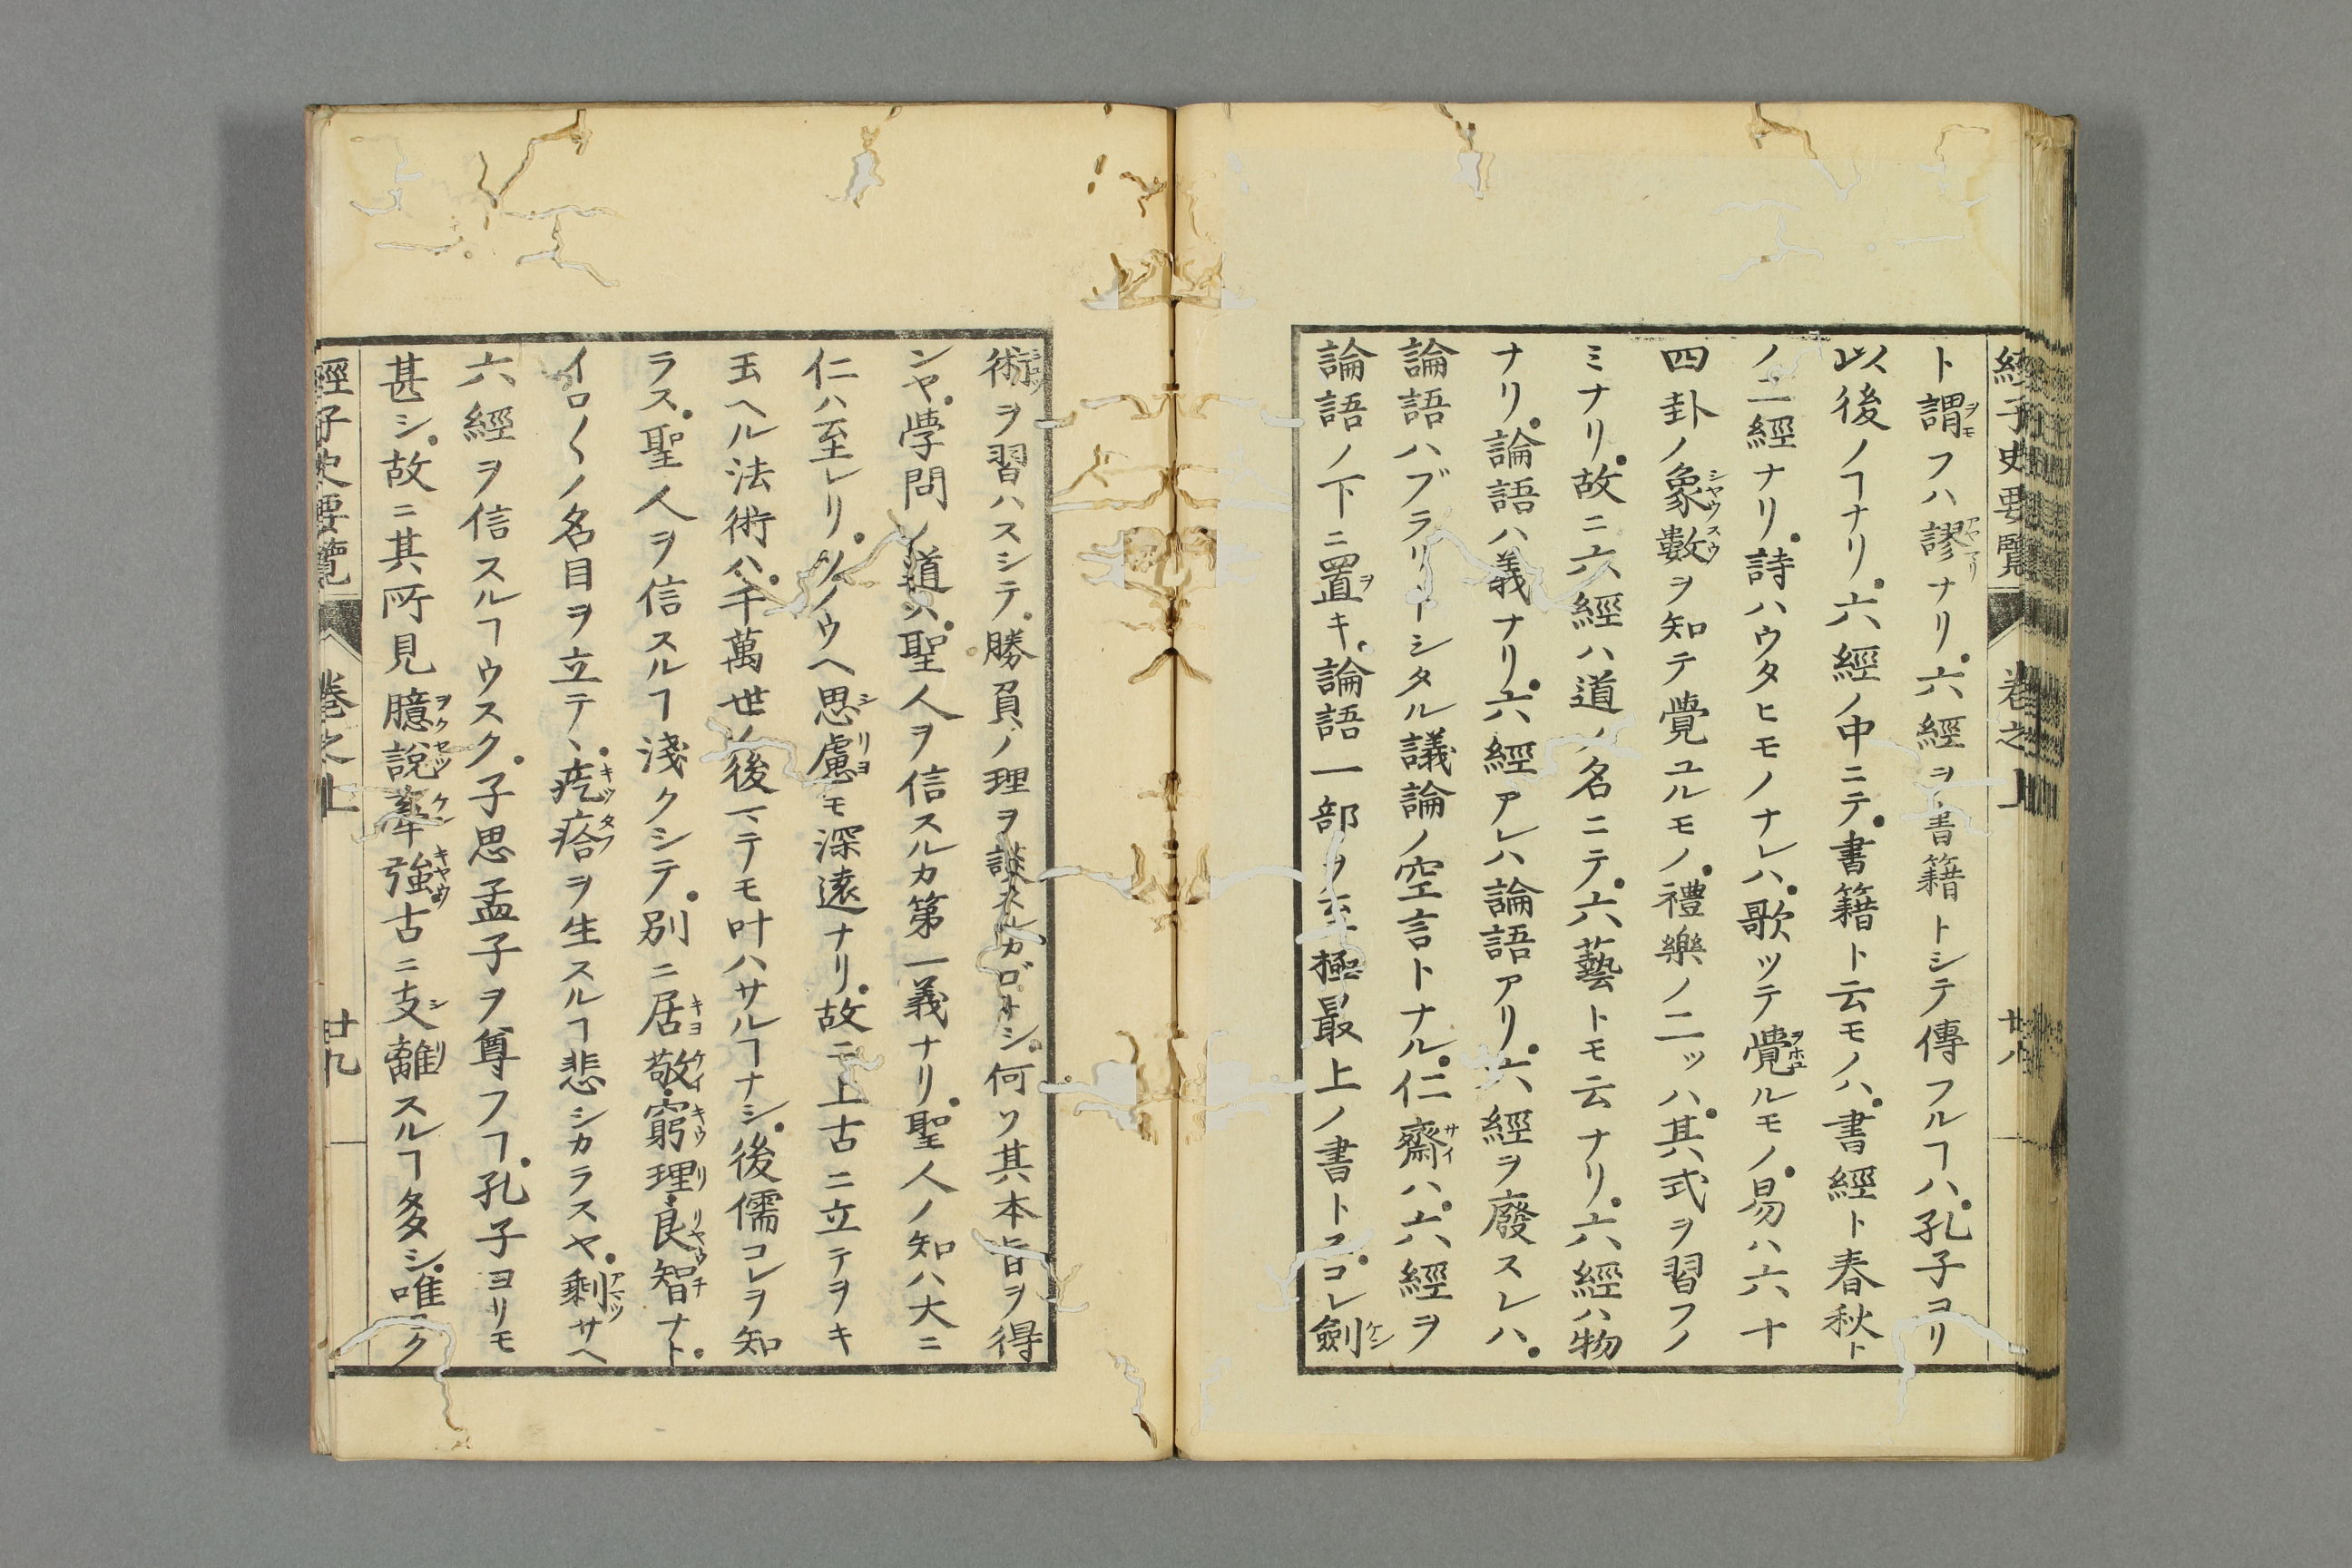 經子史要覽 卷之上 廿八
ト謂フハ謬ナリ。六經ヲ書籍トシテ傳フルヿハ。孔子ヨリ
以後ノヿナリ。六經ノ中ニテ。書籍ト云モノハ。書經ト春秋ト
ノ二經ナリ。詩ハウタヒモノナレハ。歌ツテ覺ルモノ。易ハ六十
四卦ノ象數ヲ知テ覺ユルモノ。禮樂ノ二ッハ。其式ヲ習フノ
ミナリ。故ニ六經ハ道ノ名ニテ。六藝トモ云ナリ。六經ハ物
ナリ。論語ハ義ナリ。六經アレハ論語アリ。六經ヲ廢スレハ。
論語ハブラリトシタル議論ノ空言トナル。仁齋ハ。六經ヲ
論語ノ下ニ置キ。論語一部ヲ至極最上ノ書トス。コレ劍
術ヲ習ハスシテ。勝負ノ理ヲ談スルカゴトシ。何ソ其本旨ヲ得
ンヤ。學問ノ道ハ。聖人ヲ信スルカ第一義ナリ。聖人ノ知ハ大ニ
仁ハ至レリ。ソノウヘ思慮モ深遠ナリ。故ニ上古ニ立テヲキ
玉ヘル法術ハ。千萬世ノ後マテモ叶ハサルヿナシ。後儒コレヲ知
ラス。聖人ヲ信スルヿ淺クシテ。別ニ居敬。窮理。良智ナト。
イロ〱ノ名目ヲ立テヽ。疙瘩ヲ生スルヿ悲シカラスヤ。剩サヘ
六經ヲ信スルヿウスク。子思孟子ヲ尊フヿ。孔子ヨリモ
甚シ。故ニ其所見臆說牽強古ニ支離スルヿ多シ。唯ヨク
經子史要覽 卷之上 廿九